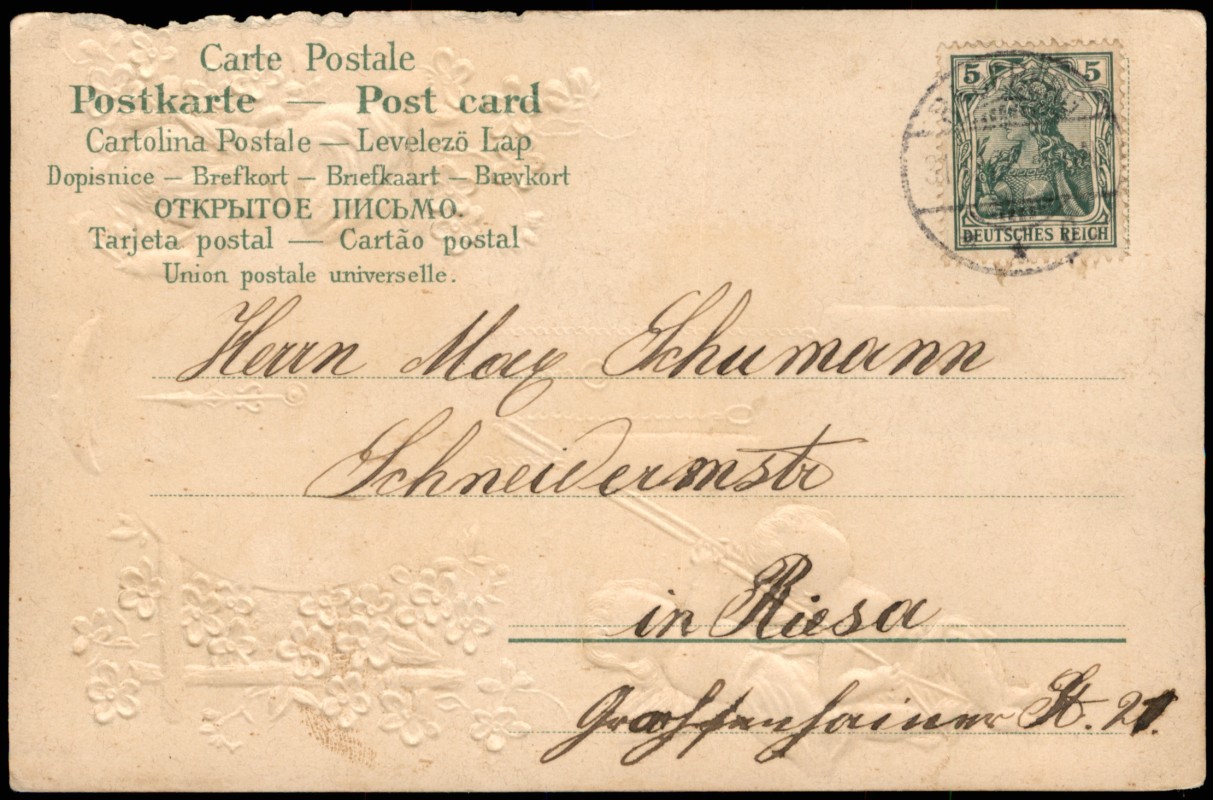 Carte Postale
Postkarte — Post card
Cartolina Postale — Levelezö Lap
Dopisnice — Brefkort — Briefkaart — Brevkort
ОТКРЫТОЕ ПИСЬМО.
Tarjeta postal — Cartão postal
Union postale universelle.
5 5
DEUTSCHES REICH
Herrn Max Schumann
Schneidermstr
in Riesa
St. 21.